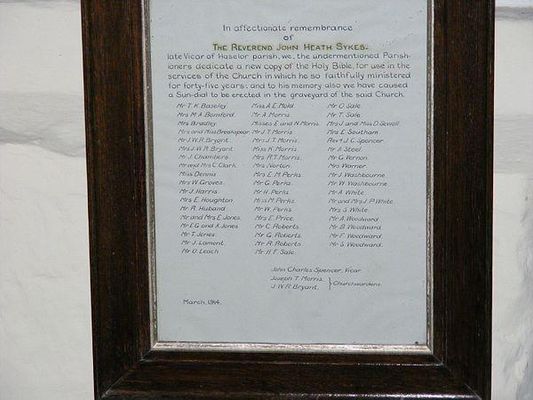 In affectionate remembrance
of
The Reverend John Heath Sykes.
late Vicar of Haselor parish, we, the undermentioned Parish-
ioners dedicate a new copy of the Holy Bible, for use in the
services of the Church in which he so faithfully ministered
for forty-five years; and to his memory also we have caused
a Sun-dial to be erected in the graveyard of the said Church.
Mr T. K. Baseley Miss A. E. Mold Mr O. Sale
Mrs M. A. Bomford Mr A. Morris Mr T. Sale
Mrs Bradley Misses E. and N. Morris Mr J. and Miss D. Sewell
Mrs and Miss Breakspear Mr J. T. Morris Mrs E. Southam
Mr J. W. R. Bryant Mrs J. T. Morris Revd J. C. Spencer
Mrs J. W. R. Bryant Miss K. Morris Mr A. Steel
Mr J. Chambers Mrs R. T. Morris Mr G. Vernon
Mr and Mrs C. Clark Mrs Norton Mrs Warner
Miss Dennis Mrs E. M. Perks Mr J. Washbourne
Mrs W. Groves Mr G. Perks Mr W. Washbourne
Mr J. Harris Mr H. Perks Mr A. White
Mrs E. Houghton Miss M. Perks Mr and Mrs J. P. White
Mr R. Huband Mr W. Perks Mrs S. White
Mr and Mrs E. Jones Mrs E. Price Mr A. Woodward
Mr E. G. and K. Jones Mr C. Roberts Mr B. Woodward
Mr T. Jones Mr G. Roberts Mr F. Woodward
Mr J. Lamont Mr R. Roberts Mr S. Woodward
Mr O. Leach Mr H. F. Sale
John Charles Spencer, Vicar
Joseph T. Morris
J. W. R. Bryant } Churchwardens
March, 1944.